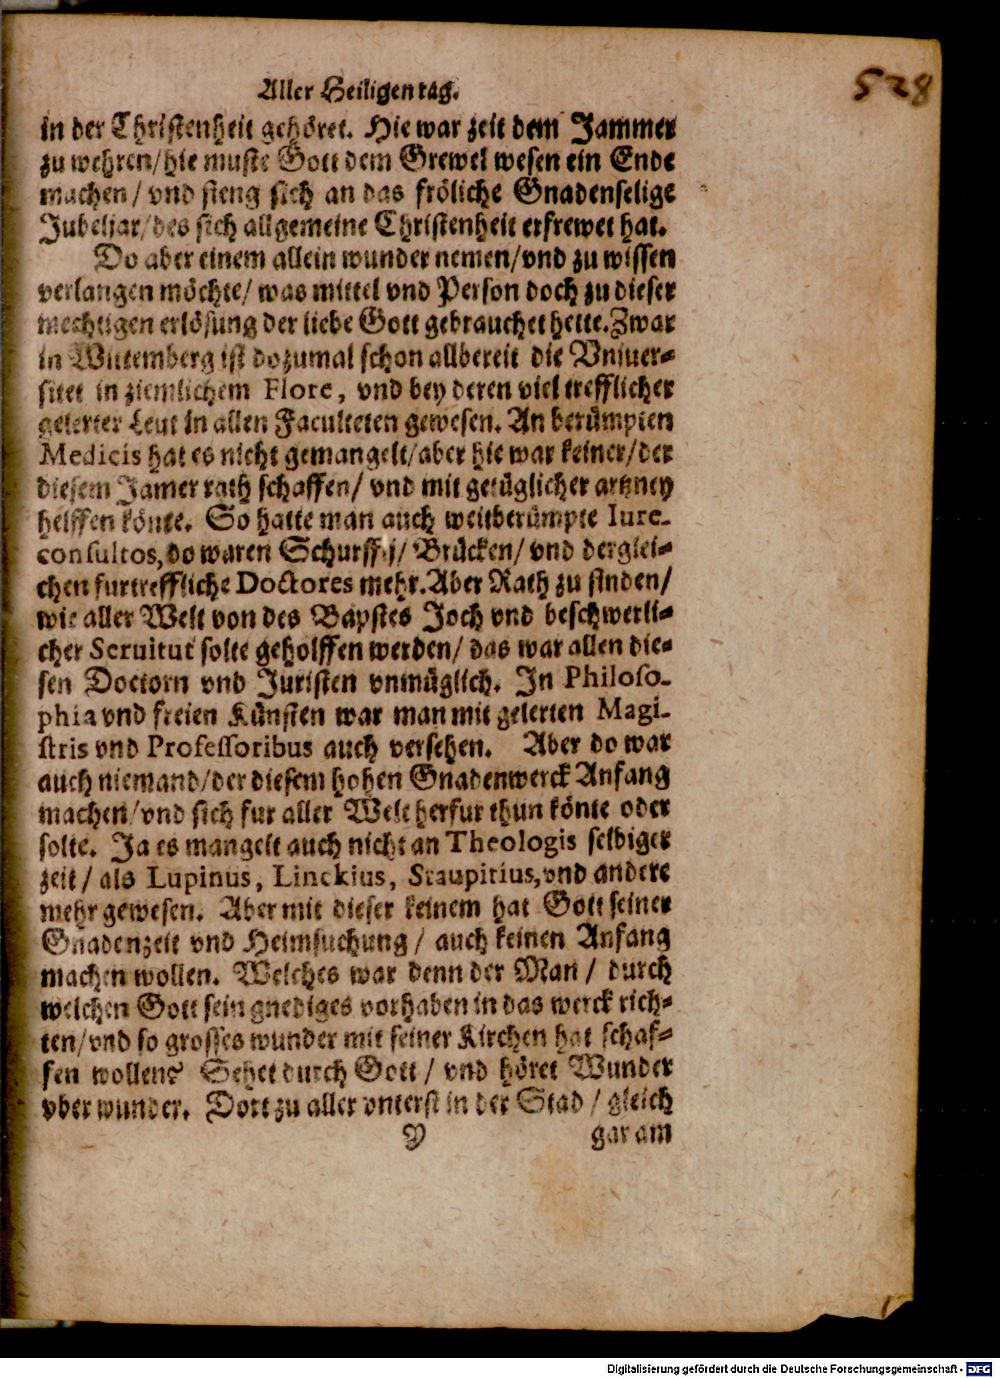 Aller Heiligen tag.
528
in der Christenheit gehöret. Hie war zeit dem Jammer
zu wehren/hie muste Gott dem Grewel wesen ein Ende
machen/ vnd fieng sich an das fröliche Gnadenselige
Jubeljar/des sich allgemeine Christenheit erfrewet hat.
Do aber einem allein wunder nemen/vnd zu wissen
verlangen möchte/ was mittel vnd Person doch zu dieser
mechtigen erlösung der liebe Gott gebrauchet hette. Zwar
in Wittemberg ist dozumal schon allbereit die Vniuer-
sitet in ziemlichem Flore, vnd bey deren viel trefflicher
gelerter Leut in allen Faculteten gewesen. An berümpten
Medicis hat es nicht gemangelt/aber hie war keiner/der
diesem Jamer rath schaffen/ vnd mit getüglicher artzney
helffen könte. So hatte man auch weitberümpte Iure-
consultos, do waren Schurffij/ Brücken/ vnd derglei-
chen furtreffliche Doctores mehr. Aber Rath zu finden/
wie aller Welt von des Bapstes Joch vnd beschwerli-
cher Seruitut solte geholffen werden/ das war allen die-
sen Doctorn vnd Juristen vnmüglich. In Philoso-
phia vnd freien Künsten war man mit gelerten Magi-
stris vnd Professoribus auch versehen. Aber do war
auch niemand/der diesem hohen Gnadenwerck Anfang
machen/vnd sich fur aller Welt herfur thun könte oder
solte. Ja es mangelt auch nicht an Theologis selbiger
zeit/ als Lupinus, Linckius, Staupitius, vnd andere
mehr gewesen. Aber mit dieser keinem hat Gott seiner
Gnadenzeit vnd Heimsuchung/ auch keinen Anfang
machen wollen. Welches war denn der Man/ durch
welchen Gott sein gnediges vorhaben in das werck rich-
ten/vnd so grosses wunder mit seiner Kirchen hat schaf-
fen wollen? Sehet durch Gott/ vnd höret Wunder
vber wunder. Dort zu aller vnterst in der Stad/ gleich
Y gar am
Digitalisierung gefördert durch die Deutsche Forschungsgemeinschaft - DFG